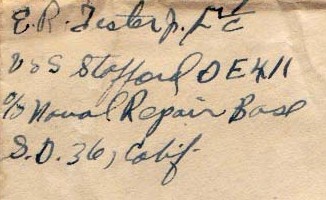 E.R. Tester Jr. Lt
USS Stafford DE411
c/o Naval Repair Base
S.D. 36, Calif.